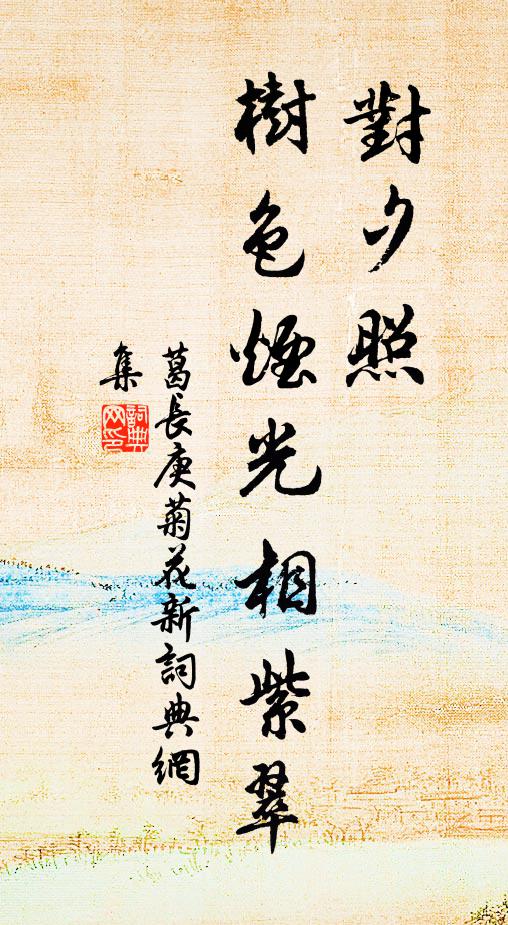 對夕照
樹色煙光相紫翠
葛長庚菊花新詞典網
集
詞典网印